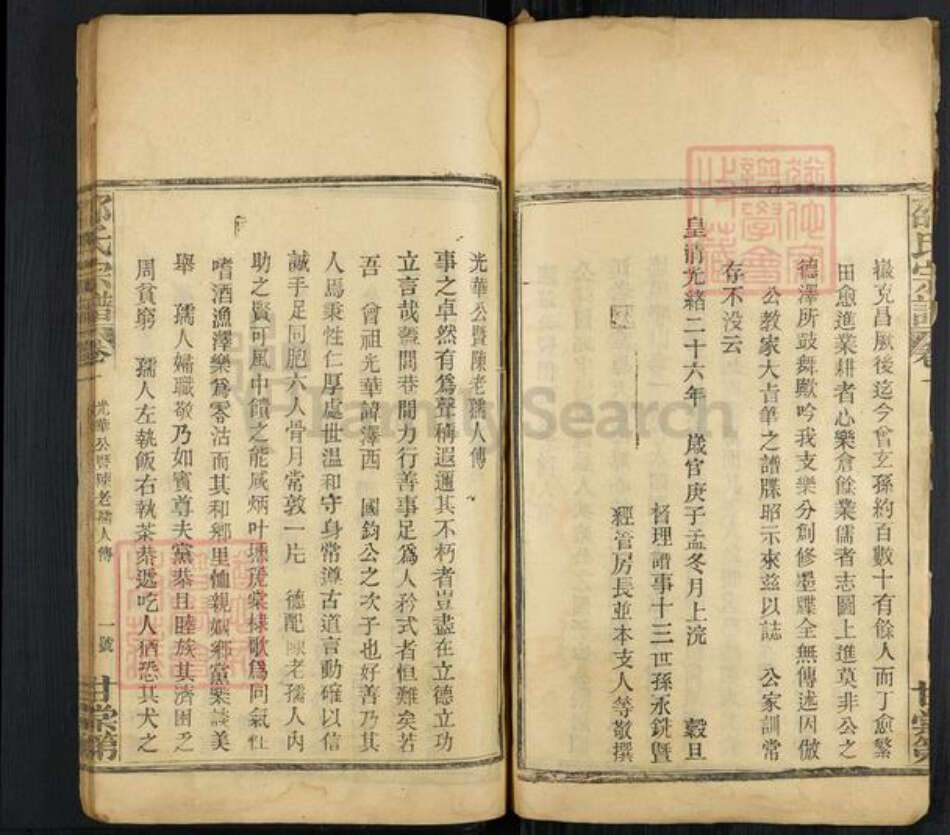 邵氏宗譜 卷一
嶽克昌厥後迄今曾玄孫約百數十有餘人而丁愈繁
田愈進業耕者心樂倉餘業儒者志圖上進莫非公之
德澤所鼓舞歟吟我支樂分創修墨牒全無傳述因倣
公教家大旨筆之譜牒昭示來茲以誌 公家訓常
存不没云
皇清光緒二十六年 歲官庚子孟冬月上浣 穀旦
督理譜事十三世孫永銑暨
經管房長並本支人等敬撰
甘棠第
光華公暨陳老孺人傳
事之卓然有為聲稱遐邇其不朽者豈盡在立德立功
立言哉蓋閭巷間力行善事足為人矜式者恒難矣若
吾 曾祖光華諱澤西 國鈞公之次子也好善乃其
人焉秉性仁厚處世温和守身常遵古道言動確以信
誠手足同胞六人骨月常敦一片 德配陳老孺人内
助之賢可風中饋之能咸炳叶壎篪棠棣歌為同氣性
嗜酒漁澤樂為零沽而其和鄉里恤親姻鄉黨樂談美
舉 孺人婦職敬乃如賓尊夫黨恭且睦族其濟困之
周貧窮 孺人左執飯右執茶恭遞吃人猶恐其犬之
邵氏宗譜 卷一 光華公暨陳老孺人傳 一號 甘棠第
FamilySearch